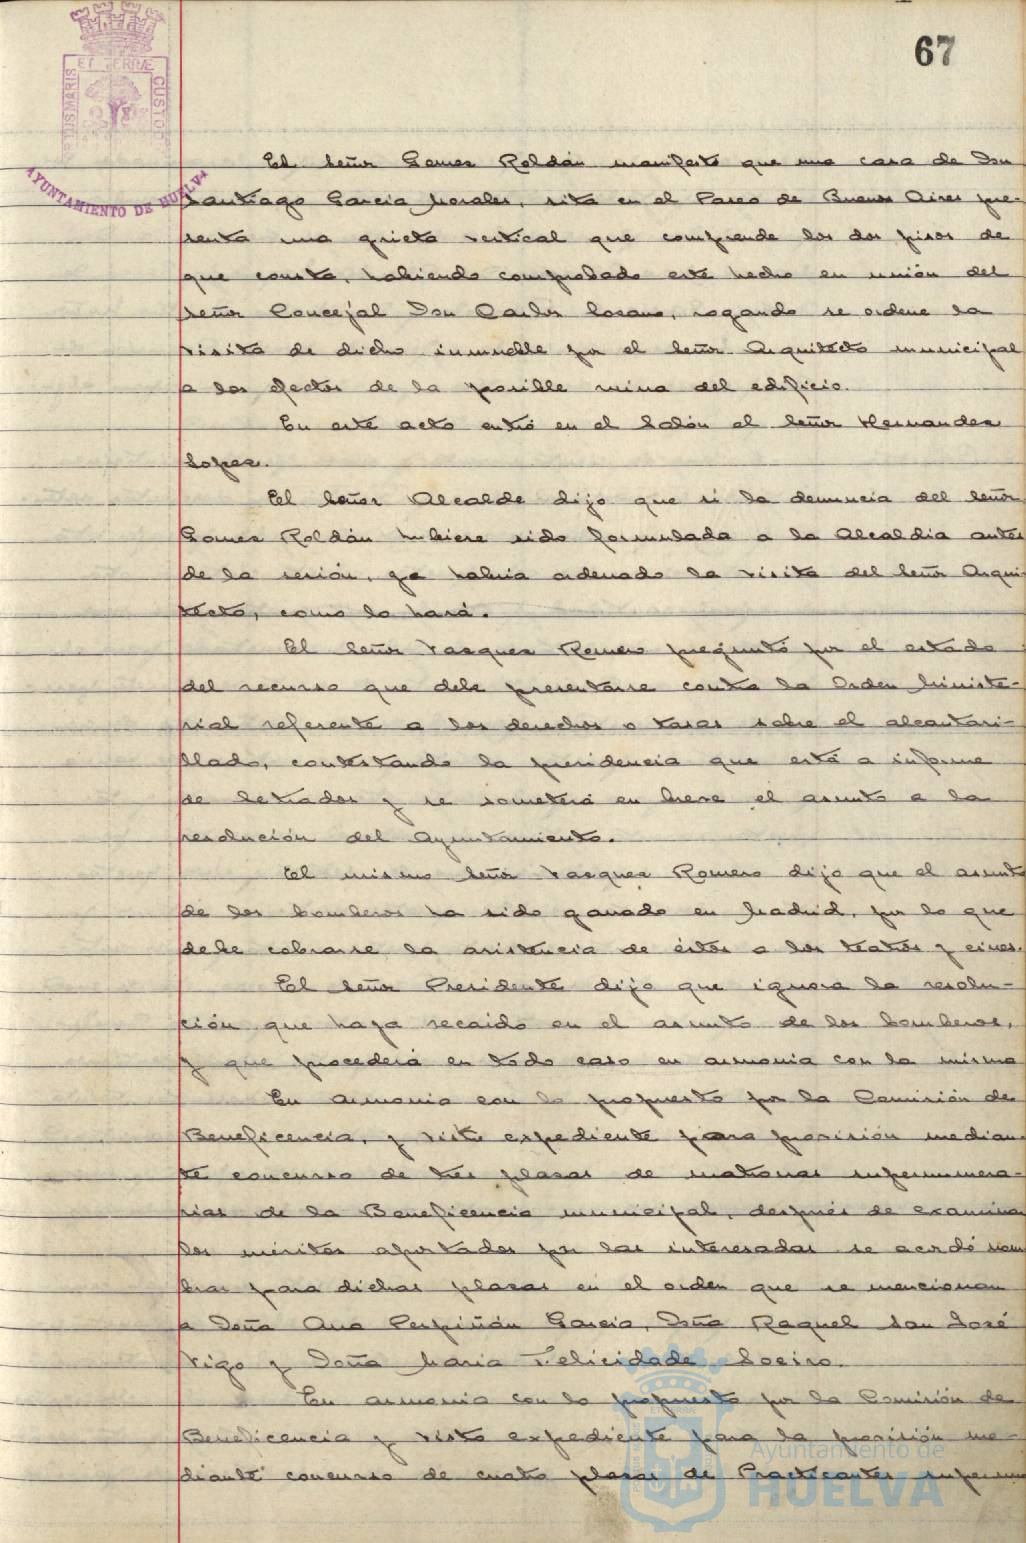 67
ET TERRÆ
CUSTOD
AYUNTAMIENTO DE HUELVA
El Señor Gomez Roldán manifesto que una casa de Don
Santiago Garcia Morales, sita en el Paseo de Buenos Aires pre-
senta una grieta vertical que comprende los dos pisos de
que consta, habiendo comprobado este hecho en unión del
Señor Concejal Don Carlos Lozano, rogando se ordene la
visita de dicho inmueble por el Señor Arquitecto municipal
a los efectos de la posible ruina del edificio.
En este acto entró en el Salón el Señor Hernandez
Lopez.
El Señor Alcalde dijo que si la denuncia del Señor
Gomez Roldán hubiera sido formulada a la Alcaldia antes
de la sesión, ya habria ordenado la visita del Señor Arqui-
tecto, como lo hará.
El Señor Vazquez Romero preguntó por el estado
del recurso que debe presentarse contra la Orden Ministe-
rial referente a los derechos o tasas sobre el alcantari-
llado, contestando la presidencia que está a informe
de Letrados y se someterá en breve el asunto a la
resolución del Ayuntamiento.
El mismo Señor Vazquez Romero dijo que el asunto
de los bomberos ha sido ganado en Madrid, por lo que
debe cobrarse la asistencia de éstos a los teatros y cines.
El Señor Presidente dijo que ignora la resolu-
ción que haya recaido en el asunto de los bomberos,
y que procederá en todo caso en armonia con la misma
En armonia con lo propuesto por la Comisión de
Beneficencia, y visto expediente para provisión median-
te concurso de tres plazas de matronas supernumera-
rias de la Beneficencia municipal, después de examinar
los méritos aportados por las interesadas se acordó nom
brar para dichas plazas en el orden que se mencionan
a Doña Ana Perpiñán Garcia, Doña Raquel San José
Vigo y Doña Maria Felicidade Loeiro.
En armonia con lo propuesto por la Comisión de
Beneficencia y visto expediente para la provisión me-
diante concurso de cuatro plazas de Practicantes supernu
Ayuntamiento de
HUELVA